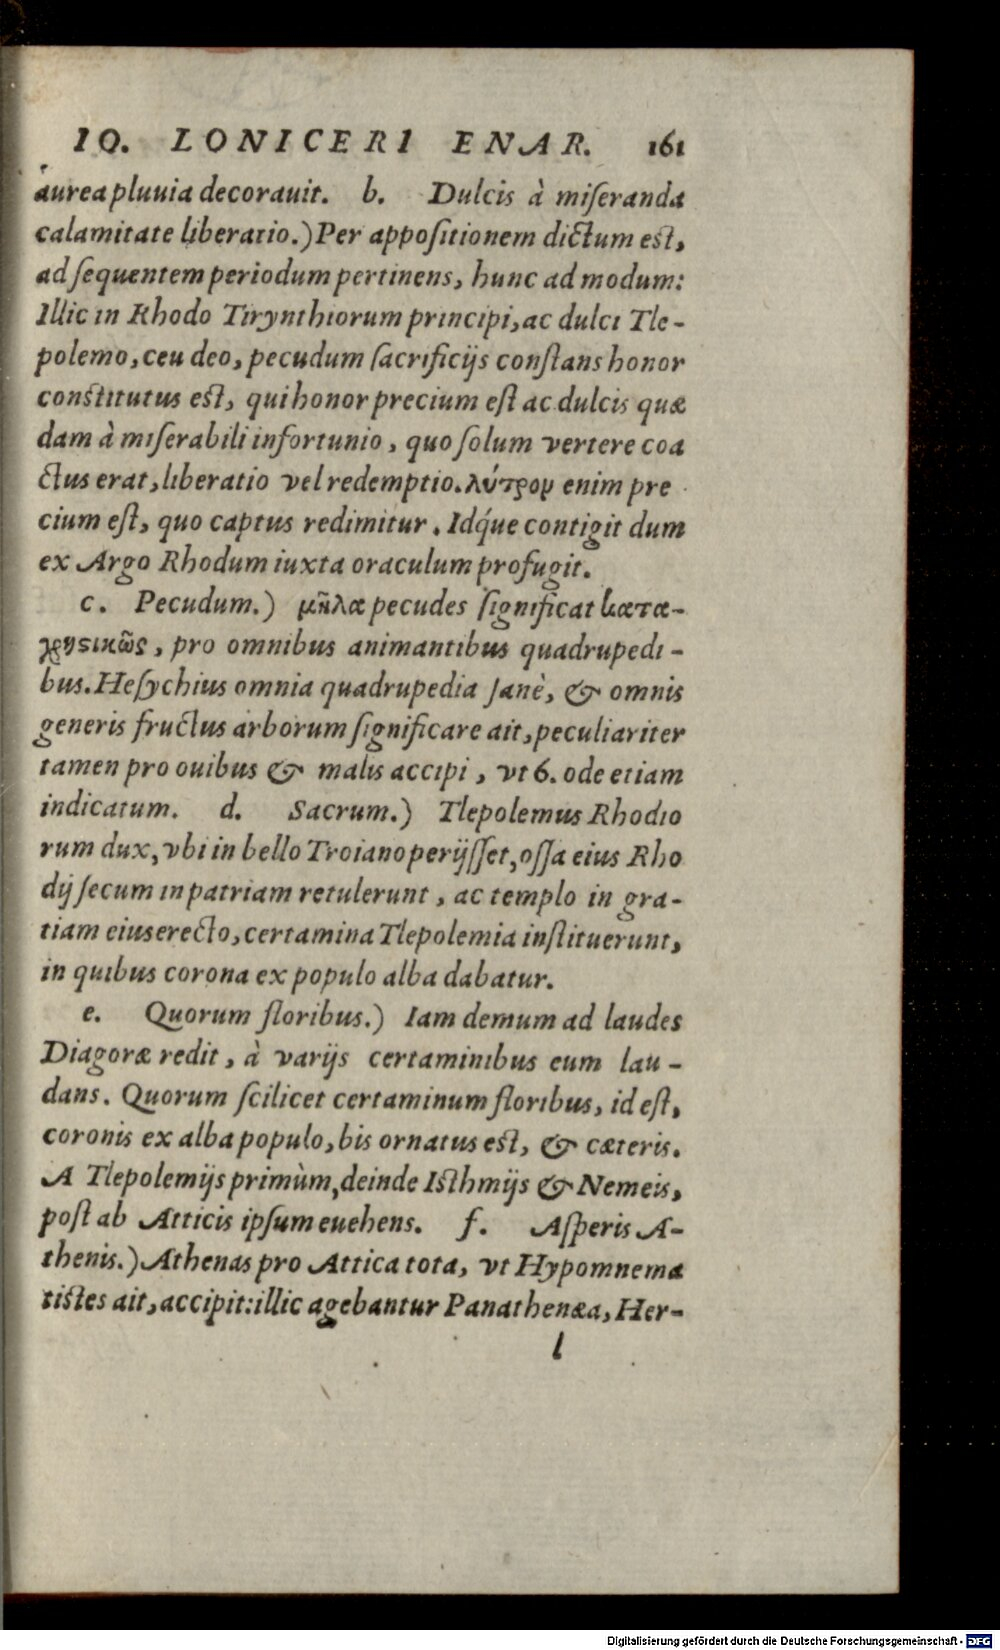 IO. LONICERI ENAR. 161
aurea pluuia decorauit. b. Dulcis à miſeranda
calamitate liberatio.) Per appoſitionem dictum eſt,
ad ſequentem periodum pertinens, hunc ad modum:
Illic in Rhodo Tirynthiorum principi, ac dulci Tle-
polemo, ceu deo, pecudum ſacrificijs conſtans honor
conſtitutus eſt, qui honor precium eſt ac dulcis quæ
dam à miſerabili infortunio, quo ſolum vertere coa
ctus erat, liberatio vel redemptio. λύτρον enim pre
cium eſt, quo captus redimitur. Idq́ue contigit dum
ex Argo Rhodum iuxta oraculum profugit.
c. Pecudum.) μῆλα pecudes ſignificat κατα-
χρηςικῶς, pro omnibus animantibus quadrupedi-
bus. Heſychius omnia quadrupedia ſanè, & omnis
generis fructus arborum ſignificare ait, peculiariter
tamen pro ouibus & malis accipi, vt 6. ode etiam
indicatum. d. Sacrum.) Tlepolemus Rhodio
rum dux, vbi in bello Troiano perijſſet, oſſa eius Rho
dij ſecum in patriam retulerunt, ac templo in gra-
tiam eius erecto, certamina Tlepolemia inſtituerunt,
in quibus corona ex populo alba dabatur.
e. Quorum floribus.) Iam demum ad laudes
Diagoræ redit, à varijs certaminibus eum lau-
dans. Quorum ſcilicet certaminum floribus, id eſt,
coronis ex alba populo, bis ornatus eſt, & cæteris.
A Tlepolemijs primùm, deinde Iſthmijs & Nemeis,
poſt ab Atticis ipſum euehens. f. Aſperis A-
thenis.) Athenas pro Attica tota, vt Hypomnema
tiſtes ait, accipit: illic agebantur Panathenæa, Her-
l
Digitalisierung gefördert durch die Deutsche Forschungsgemeinschaft - DFG